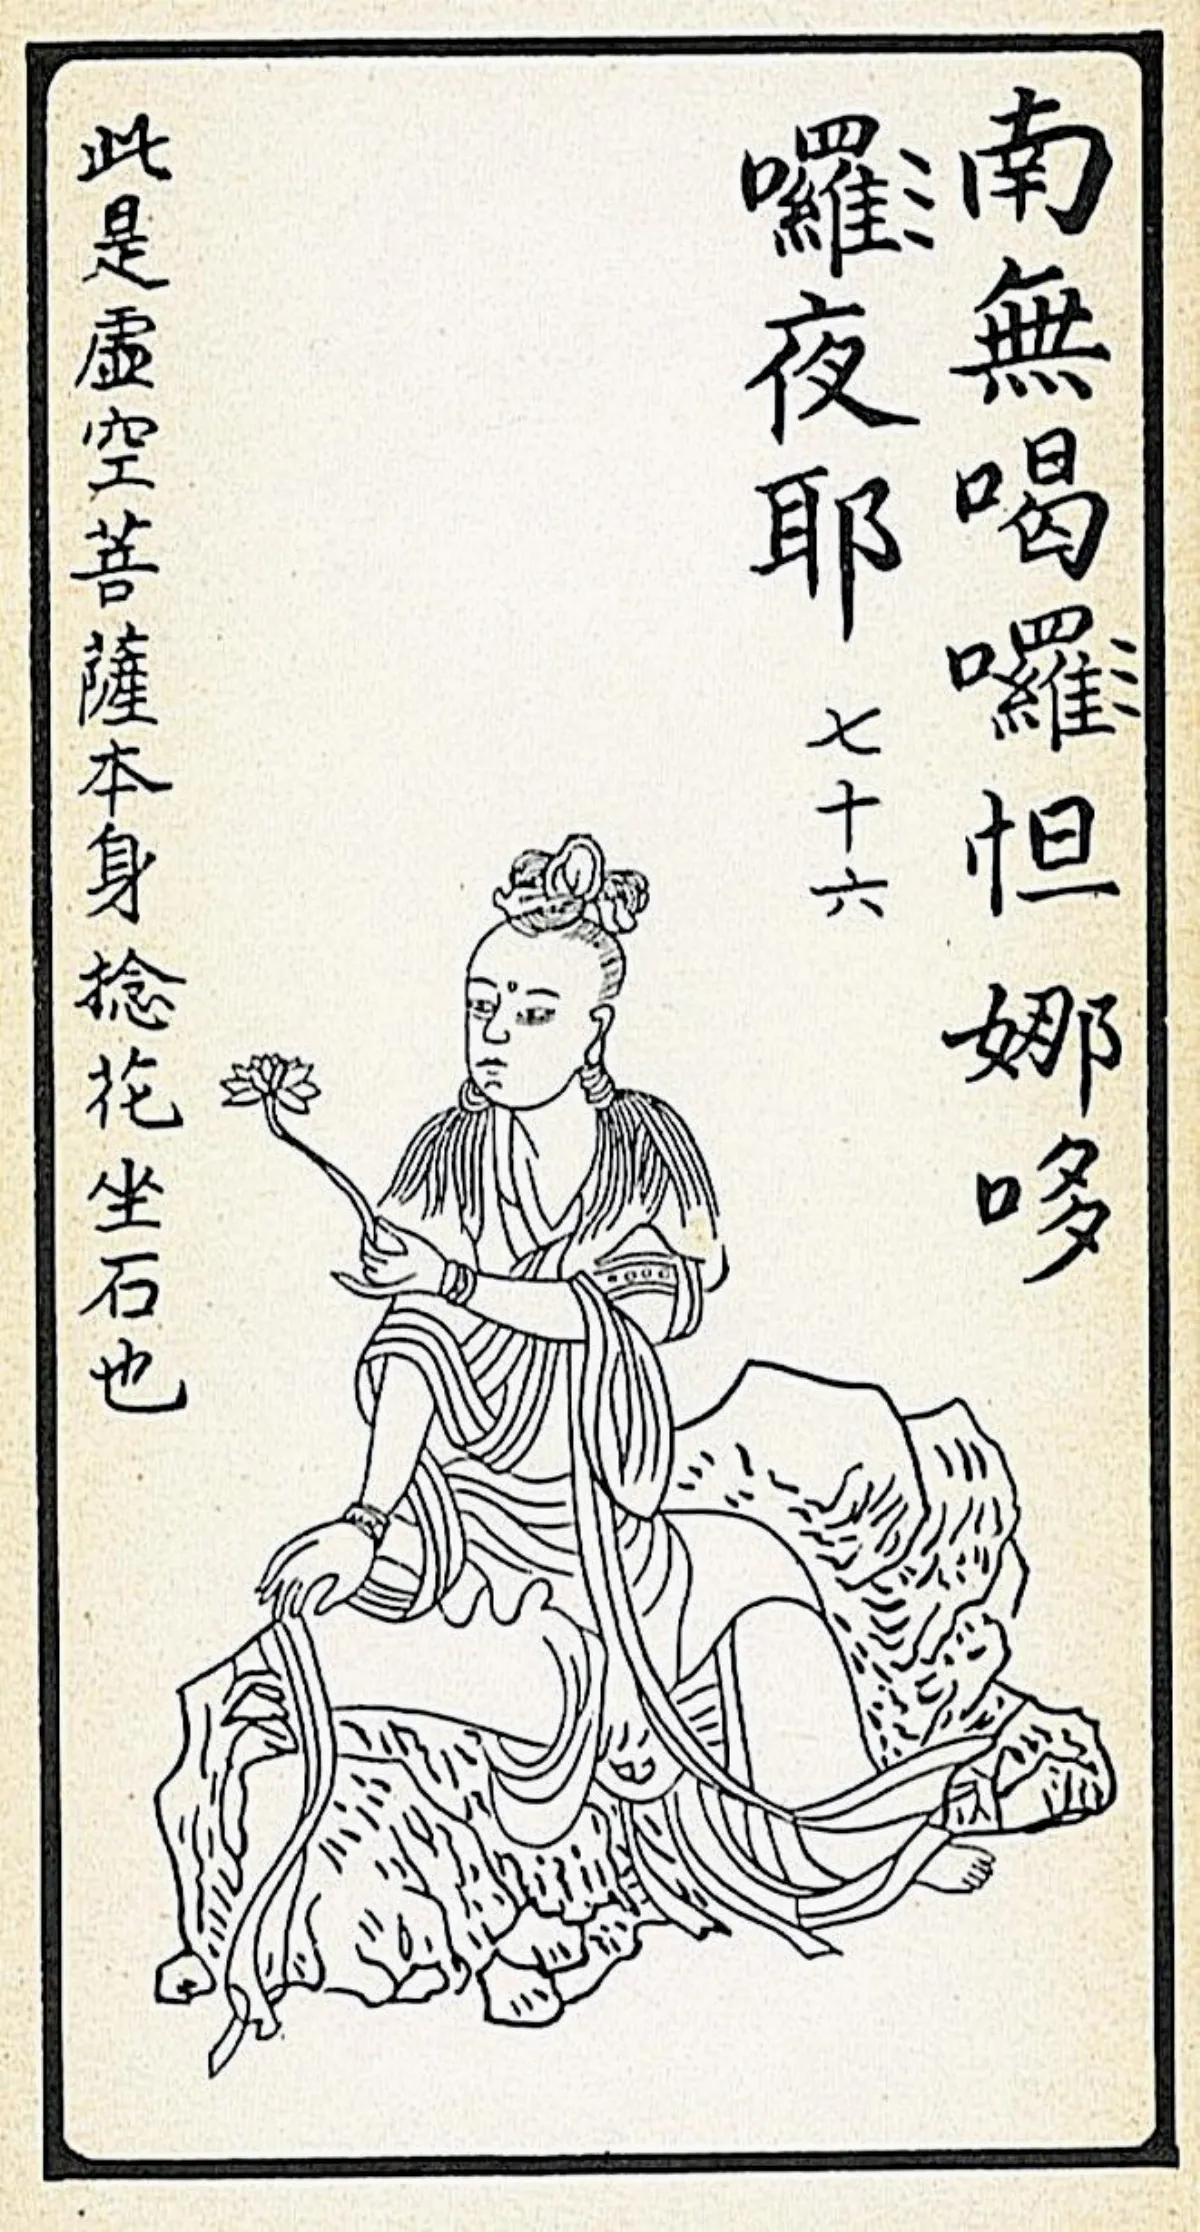 南無喝囉怛娜哆
囉夜耶 七十六
此是虛空菩薩本身捻花坐石也